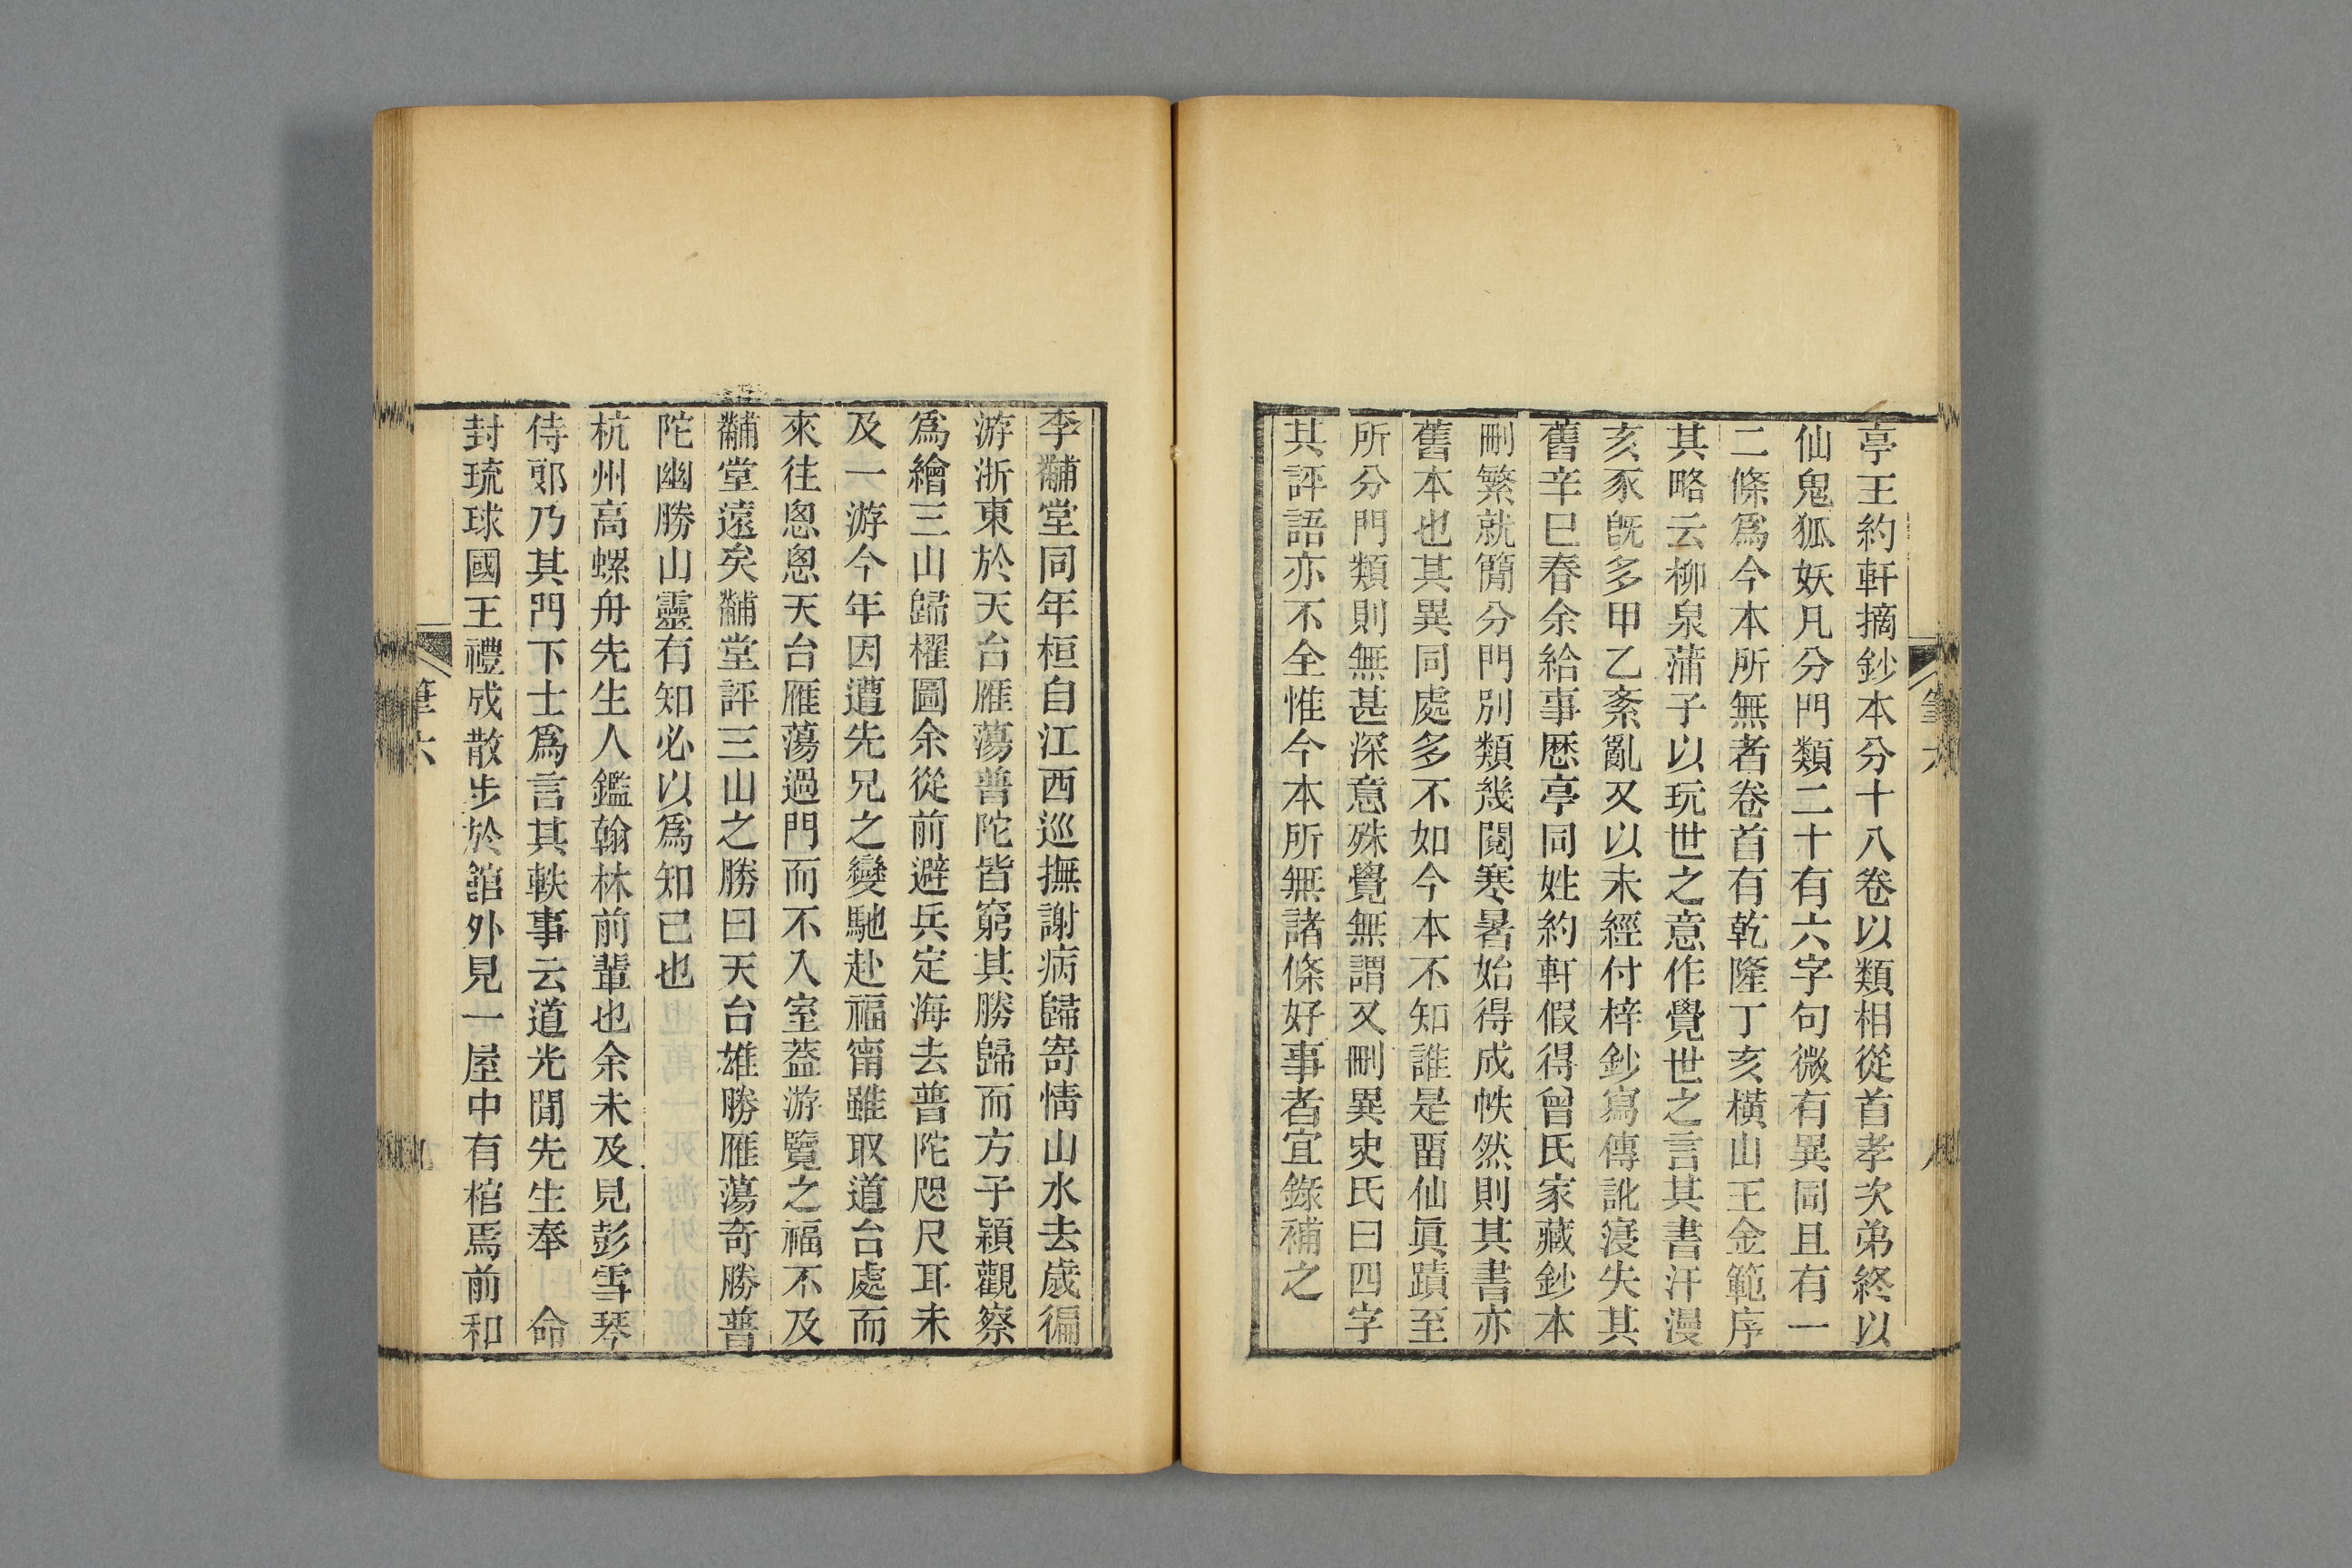 亭王約軒摘鈔本分十八卷以類相從首孝次弟終以
仙鬼狐妖凡分門類二十有六字句微有異同且有一
二條爲今本所無者卷首有乾隆丁亥橫山王金範序
其略云柳泉蒲子以玩世之意作覺世之言其書汗漫
亥豕旣多甲乙紊亂又以未經付梓鈔寫傳訛寖失其
舊辛巳春余給事歷亭同姓約軒假得曾氏家藏鈔本
刪繁就簡分門別類幾閱寒暑始得成帙然則其書亦
舊本也其異同處多不如今本不知誰是畱仙眞蹟至
所分門類則無甚深意殊覺無謂又刪異史氏曰四字
其評語亦不全惟今本所無諸條好事者宜錄補之
李黼堂同年桓自江西巡撫謝病歸寄情山水去歲徧
游浙東於天台雁蕩普陀皆窮其勝歸而方子穎觀察
爲繪三山歸櫂圖余從前避兵定海去普陀咫尺耳未
及一游今年因遭先兄之變馳赴福甯雖取道台處而
來往悤悤天台雁蕩過門而不入室葢游覽之福不及
黼堂遠矣黼堂評三山之勝曰天台雄勝雁蕩奇勝普
陀幽勝山靈有知必以爲知己也
杭州高螺舟先生人鑑翰林前輩也余未及見彭雪琴
侍郎乃其門下士爲言其軼事云道光閒先生奉 命
封琉球國王禮成散步於館外見一屋中有棺焉前和
筆六